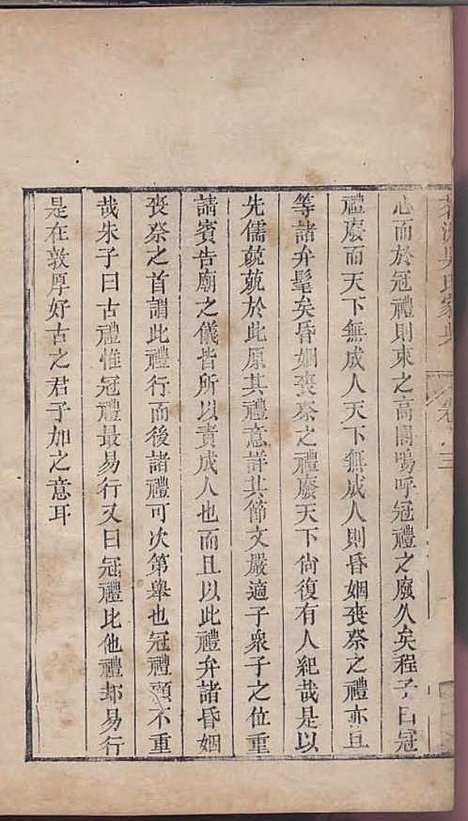 心而於冠禮則束之高閣嗚呼冠禮之廢久矣程子曰冠
禮廢而天下無成人天下無成人則昏姻喪祭之禮亦且
等諸弁髦矣昏姻喪祭之禮廢天下尙復有人紀哉是以
先儒兢兢於此原其禮意詳其節文嚴適子衆子之位重
請賓告廟之儀皆所以責成人也而且以此禮弁諸昏姻
喪祭之首謂此禮行而後諸禮可次第舉也冠禮顧不重
哉朱子曰古禮惟冠禮最易行又曰冠禮比他禮却易行
是在敦厚好古之君子加之意耳